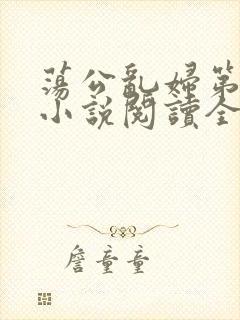 蕩公亂婦第
小說閱讀全
詹童童